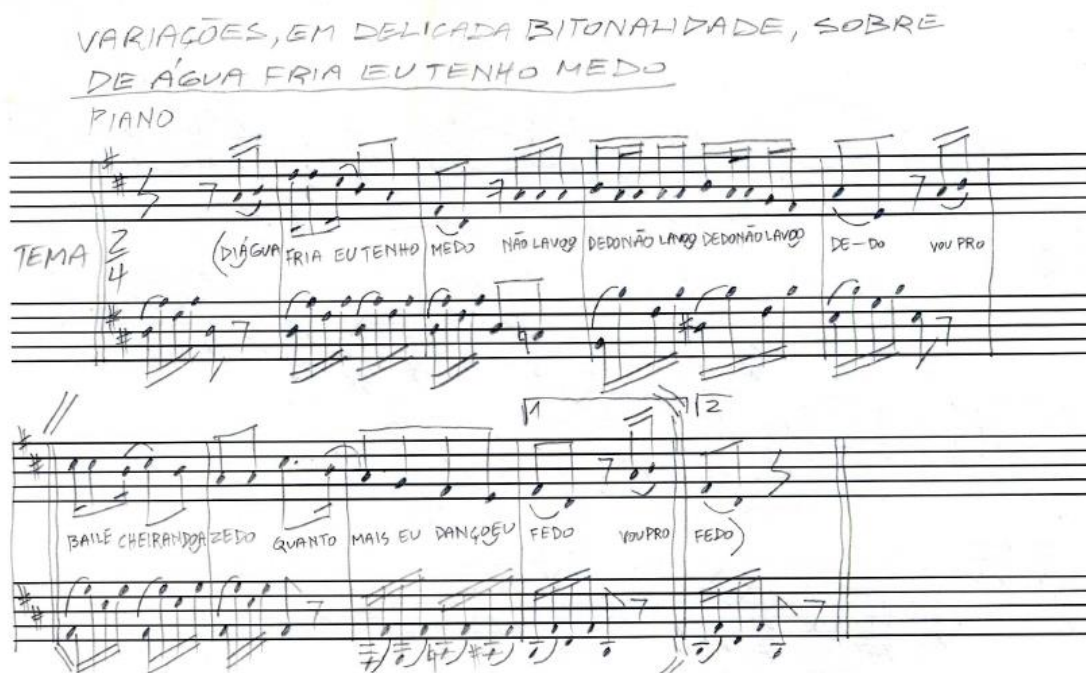 VARIAÇÕES, EM DELICADA BITONALIDADE, SOBRE
DE ÁGUA FRIA EU TENHO MEDO
PIANO
TEMA 2/4 (DIÁGUA FRIA EU TENHO MEDO NÃO LAVOO DEDO NÃO LAVOO DEDO NÃO LAVOO DE-DO VOU PRO
1 2
BAILE CHEIRANDOA ZEDO QUANTO MAIS EU DANÇOEU FEDO VOU PRO FEDO)